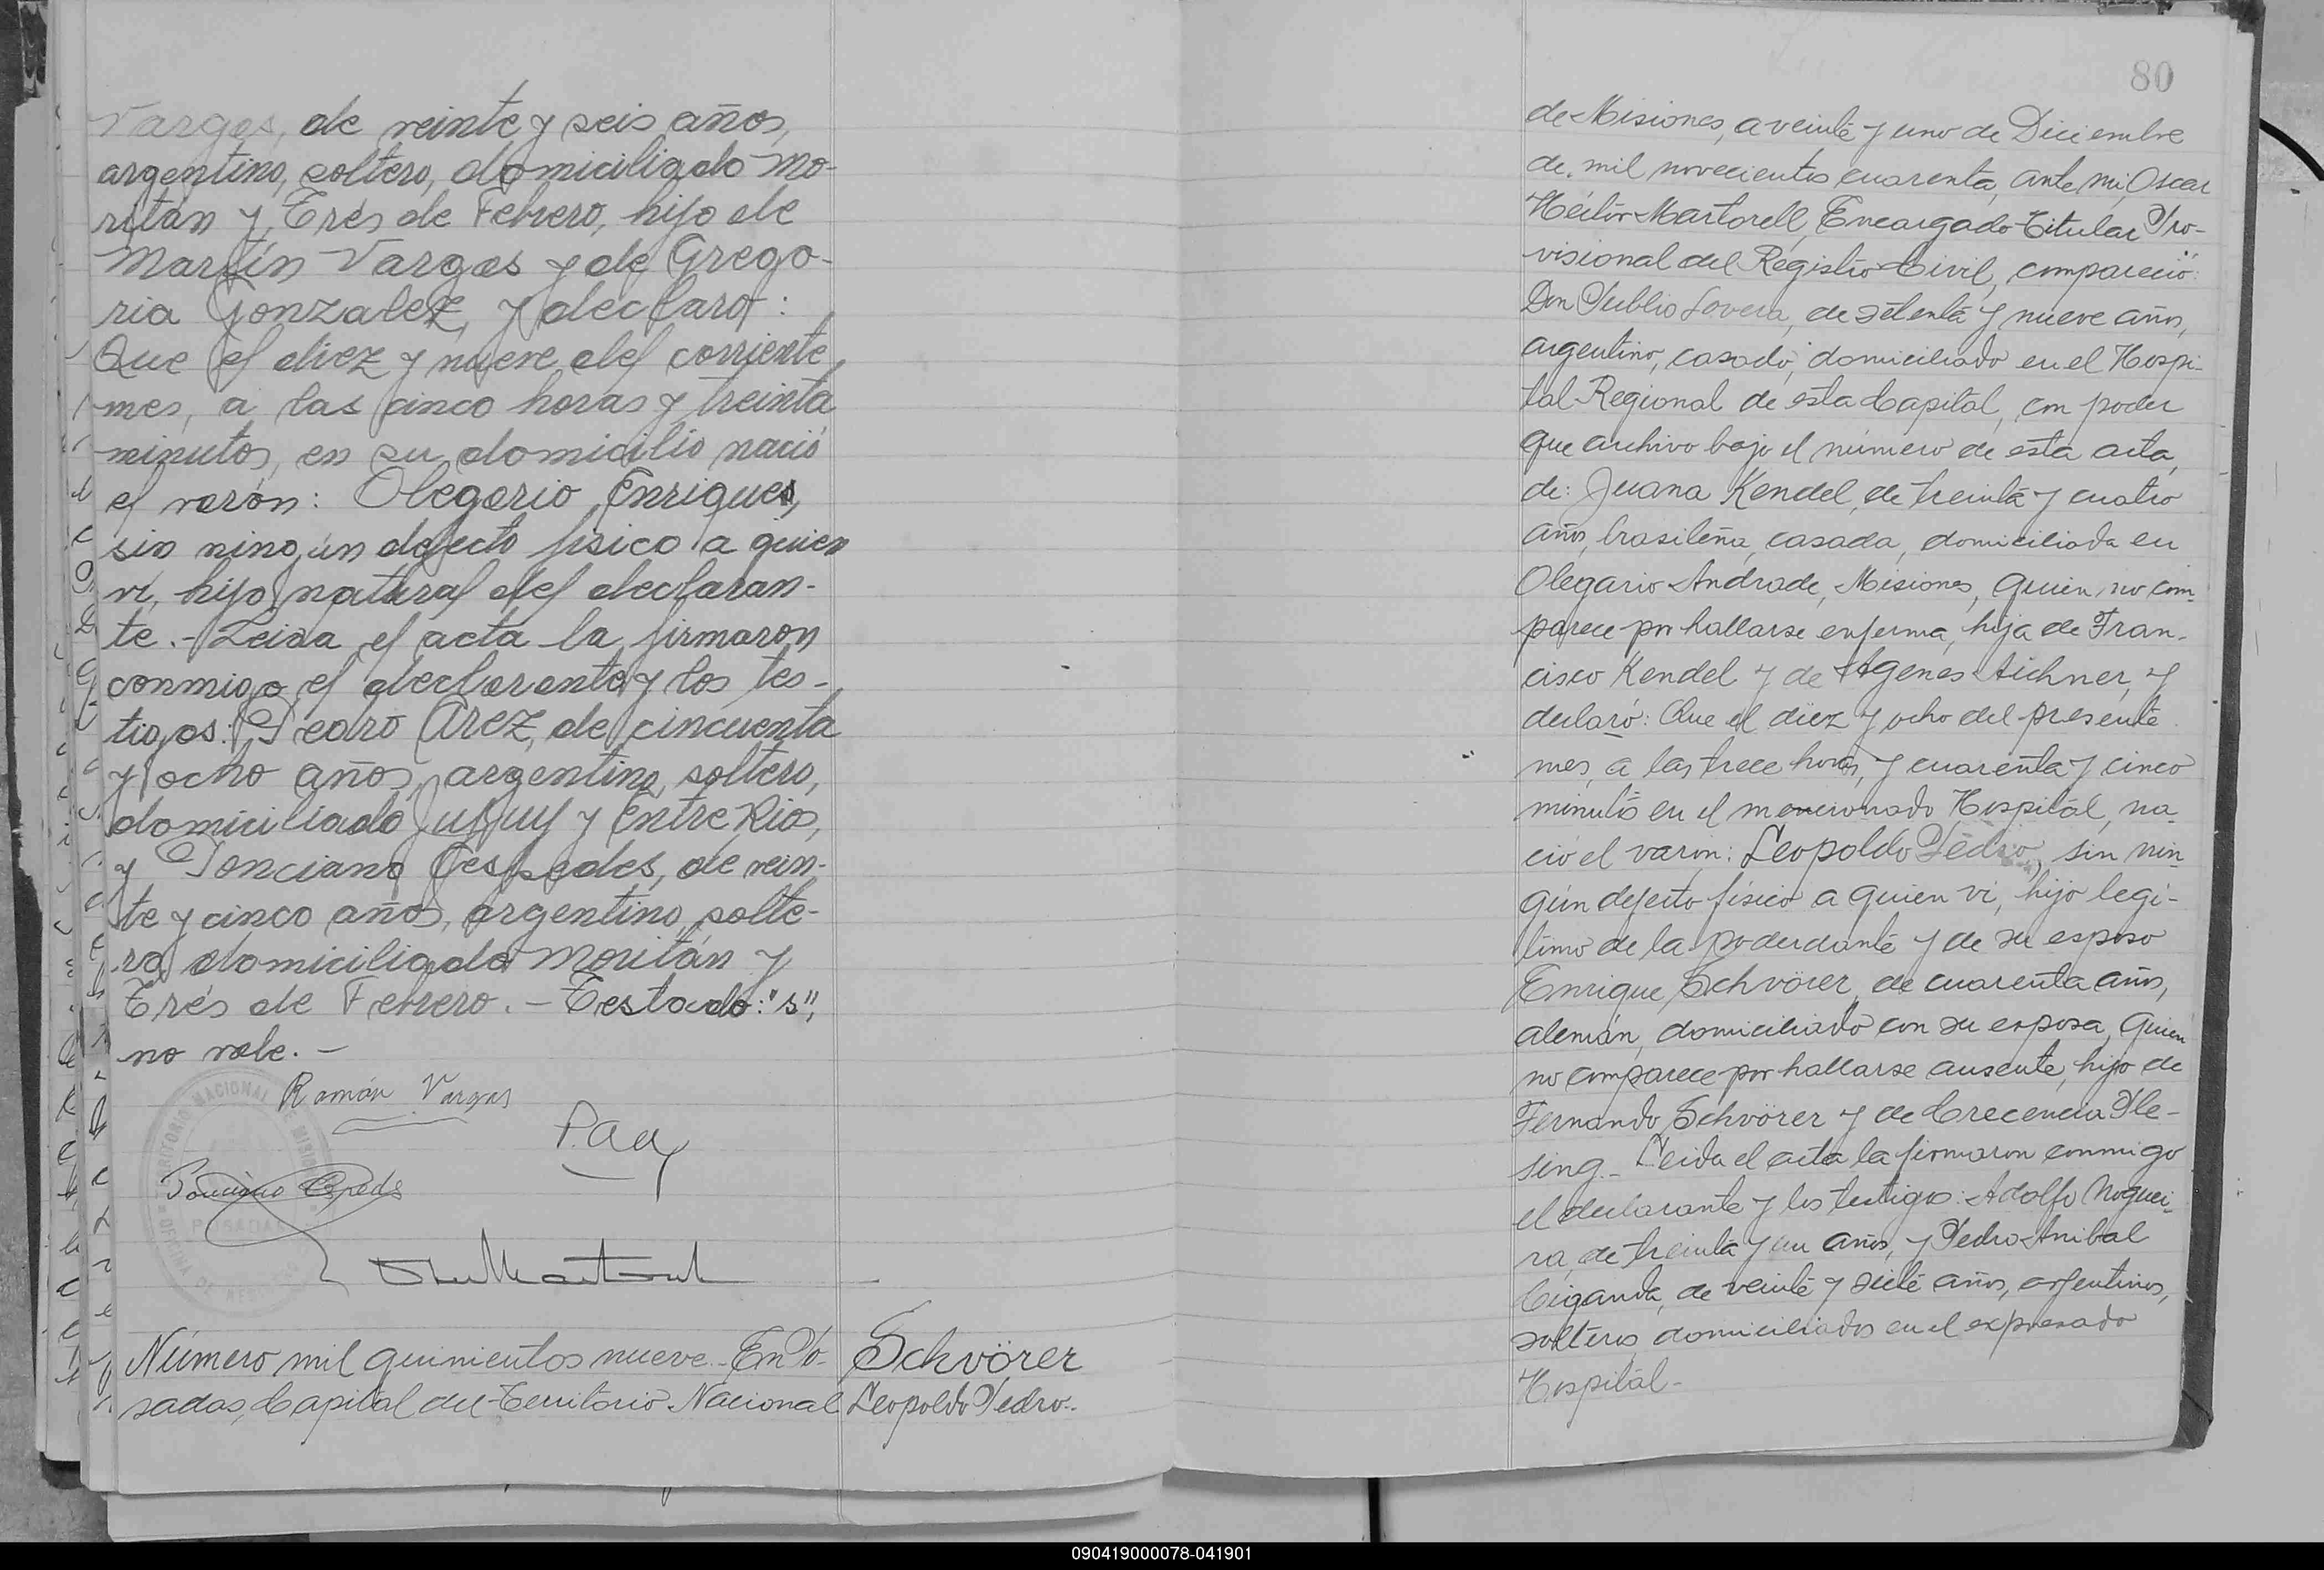 Vargas, de veinte y seis años,
argentino, soltero, domiciliado Mo-
ritán y Trés de Febrero, hijo de
Martín Vargas y de Grego-
ria Gonzalez, y declaró:
Que el diez y nueve del corriente
mes, a las cinco horas y treinta
minutos, en su domicilio nació
el varón: Olegario Enriques,
sin ningún defecto físico a quien
ví, hijo natural del declaran-
te.- Leida el acta la firmaron
conmigo el declarante y los tes-
tigos: Pedro Arez, de cincuenta
y ocho años, argentino, soltero,
domiciliado Jujuy y Entre Rios,
y Ponciano Cespedes, de vein-
te y cinco años, argentino, solte-
ro, domiciliado Moritán y
Trés de Febrero.- Testado: "s",
no vale.-
Ramón Vargas
Ponciano Cespeds
POSADAS
Número mil quinientos nueve.- En Po-
sadas, Capital del Territorio Nacional
Schvörer
Leopoldo Pedro.-
80
de Misiones, a veinte y uno de Diciembre
de mil novecientos cuarenta, ante mí, Oscar
Héctor Martorell, Encargado Titular Pro-
visional del Registro Civil, compareció:
Don Publio Lovera, de setenta y nueve años,
argentino, casado, domiciliado en el Hospi-
tal Regional de esta Capital, con poder
que archivo bajo el número de esta acta,
de: Juana Kendel, de treinta y cuatro
años, brasileña, casada, domiciliada en
Olegario Andrade, Misiones, quien no com-
parece por hallarse enferma, hija de Fran-
cisco Kendel y de Agenes Aichner, y
declaró: Que el diez y ocho del presente
mes, a las trece horas, y cuarenta y cinco
minutos en el mencionado Hospital, na-
ció el varón: Leopoldo Pedro, sin nin-
gún defecto físico a quien vi, hijo legí-
timo de la poderdante y de su esposo
Enrique Schvörer, de cuarenta años,
alemán, domiciliado con su esposa, quien
no comparece por hallarse ausente, hijo de
Fernando Schvörer y de Crecencia Ple-
sing.- Leida el acta la firmaron conmigo
el declarante y los testigos: Adolfo Noguei-
ra, de treinta y un años, y Pedro Anibal
Ciganda, de veinte y siete años, argentinos,
solteros, domiciliados en el expresado
Hospital-
090419000078-041901